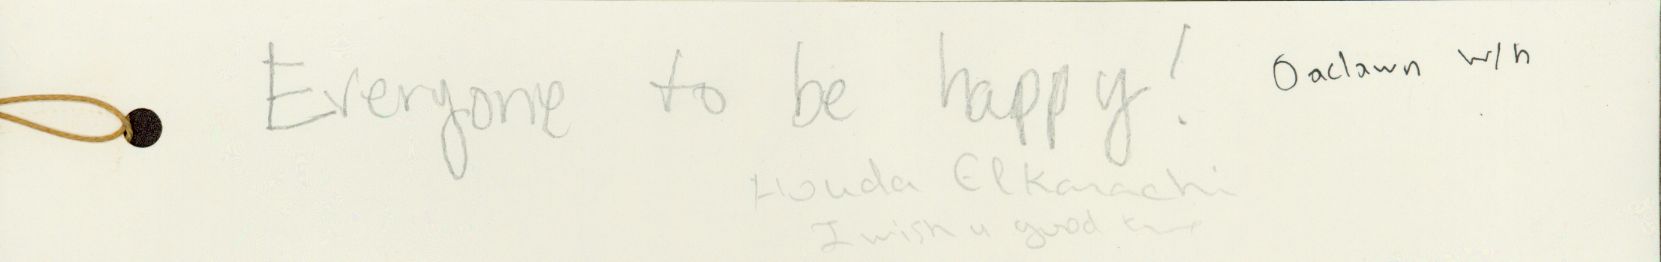 Everyone to be happy!
Oaclawn w/h
Houda Elkarachi
I wish u good